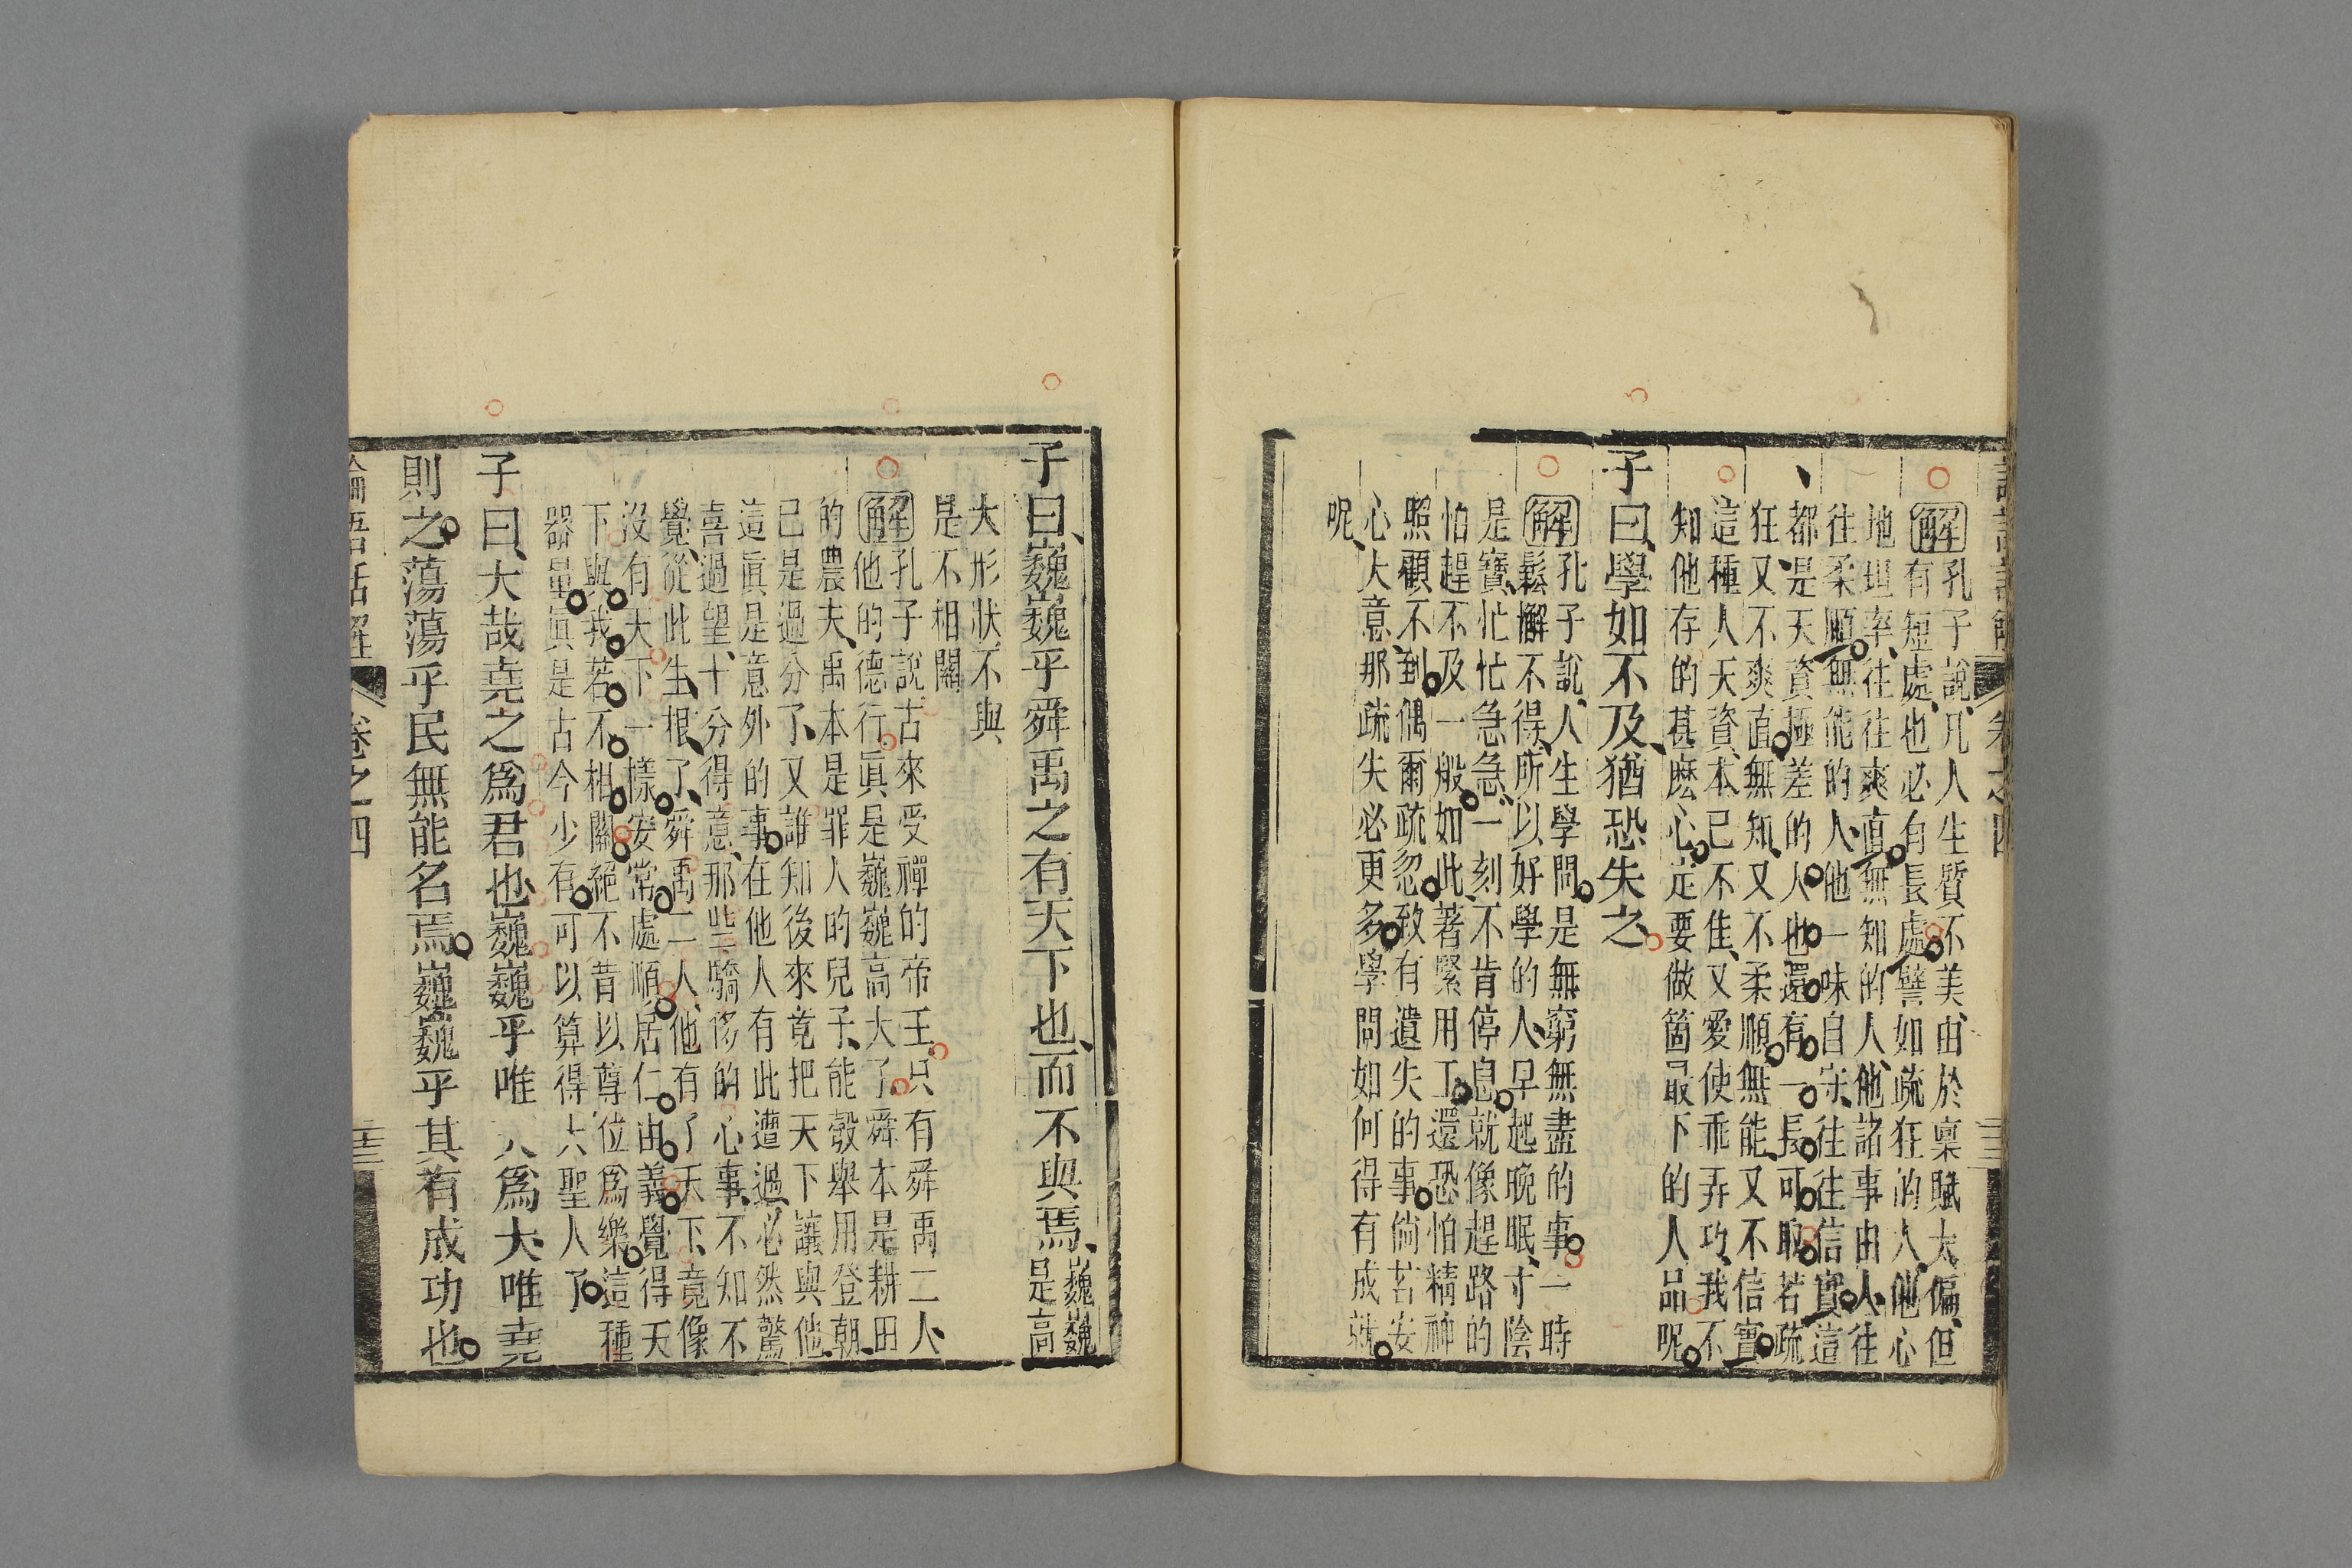 解孔子說、凡人生質不美、由於稟賦太偏、但
有短處、也必有長處、譬如疏狂的人、他心
地坦率、往往爽直、無知的人、他諸事由人、往
往柔順、無能的人、他一味自守、往往信實、這
都是天資極差的人、也還有一長可取、若疏
狂又不爽直、無知、又不柔順、無能、又不信實、
這種人天資、本已不佳、又愛使乖弄巧、我不
知他存的甚麽心、定要做箇最下的人品呢、
子曰、學如不及、猶恐失之、
解孔子說、人生學問、是無窮無盡的事、一時
鬆懈不得、所以好學的人、早起晚眠、寸陰
是寶、忙忙急急、一刻不肯停息、就像趕路的
怕趕不及一般、如此著緊用工、還恐怕精神
照顧不到、偶爾疏忽、致有遺失的事、倘若安
心大意、那疏失必更多、學問如何得有成就
呢、
子曰、巍巍乎舜禹之有天下也、而不與焉、巍巍是高
大形狀、不與
是不相關
解孔子說、古來受禪的帝王、只有舜禹二人、
他的德行、真是巍巍高大了、舜本是耕田
的農夫、禹本是罪人的兒子、能彀舉用登朝、
已是過分了、又誰知後來竟把天下讓與他、
這真是意外的事、在他人有此遭遇、必然驚
喜過望、十分得意、那些驕侈的心事、不知不
覺、從此生根了、舜禹二人、他有了天下、竟像
沒有天下一樣、安常處順、居仁由義、覺得天
下與我若不相關、絕不昔以尊位爲樂、這種
器量真是古今少有、可以算得大聖人了、
子曰、大哉堯之爲君也、巍巍乎唯 爲大、唯堯
則之、蕩蕩乎民無能名焉、巍巍乎其有成功也、
論語話解 卷之四